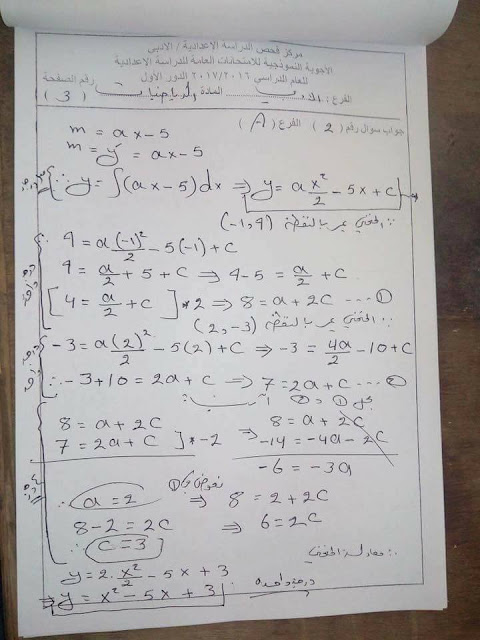 مركز فحص الدراسة الاعدادية / الادبي
الاجوبة النموذجية للامتحانات العامة للدراسة الاعدادية
للعام الدراسي ٢٠١٧/٢٠١٦ الدور الأول
الفرع : المادة الرياضيات رقم الصفحة
( 3 )
جواب سؤال رقم ( 2 ) الفرع ( A )
m = ax - 5
m = y' = ax - 5
∵ y = ∫(ax - 5)dx ⇒ y = a x²/2 - 5x + c
∵ المنحني يمر بالنقطة (-1,9)
9 = a(-1)²/2 - 5(-1) + c
9 = a/2 + 5 + c ⇒ 9-5 = a/2 + c
[4 = a/2 + c] * 2 ⇒ 8 = a + 2c ---- ①
∵ المنحني يمر بالنقطة (2,-3)
-3 = a(2)²/2 - 5(2) + c ⇒ -3 = 4a/2 - 10 + c
∴ -3+10 = 2a + c ⇒ 7 = 2a + c ---- ②
① ②
8 = a + 2c ⇒ 8 = a + 2c
7 = 2a + c ] * -2 -14 = -4a - 2c
-6 = -3a
∴ a = 2 ⇒ 8 = 2 + 2c نعوض في ①
8 - 2 = 2c ⇒ 6 = 2c
∴ c = 3
∴ معادلة المنحني
y = 2 . x²/2 - 5x + 3
⇒ y = x² - 5x + 3 درجة واحدة